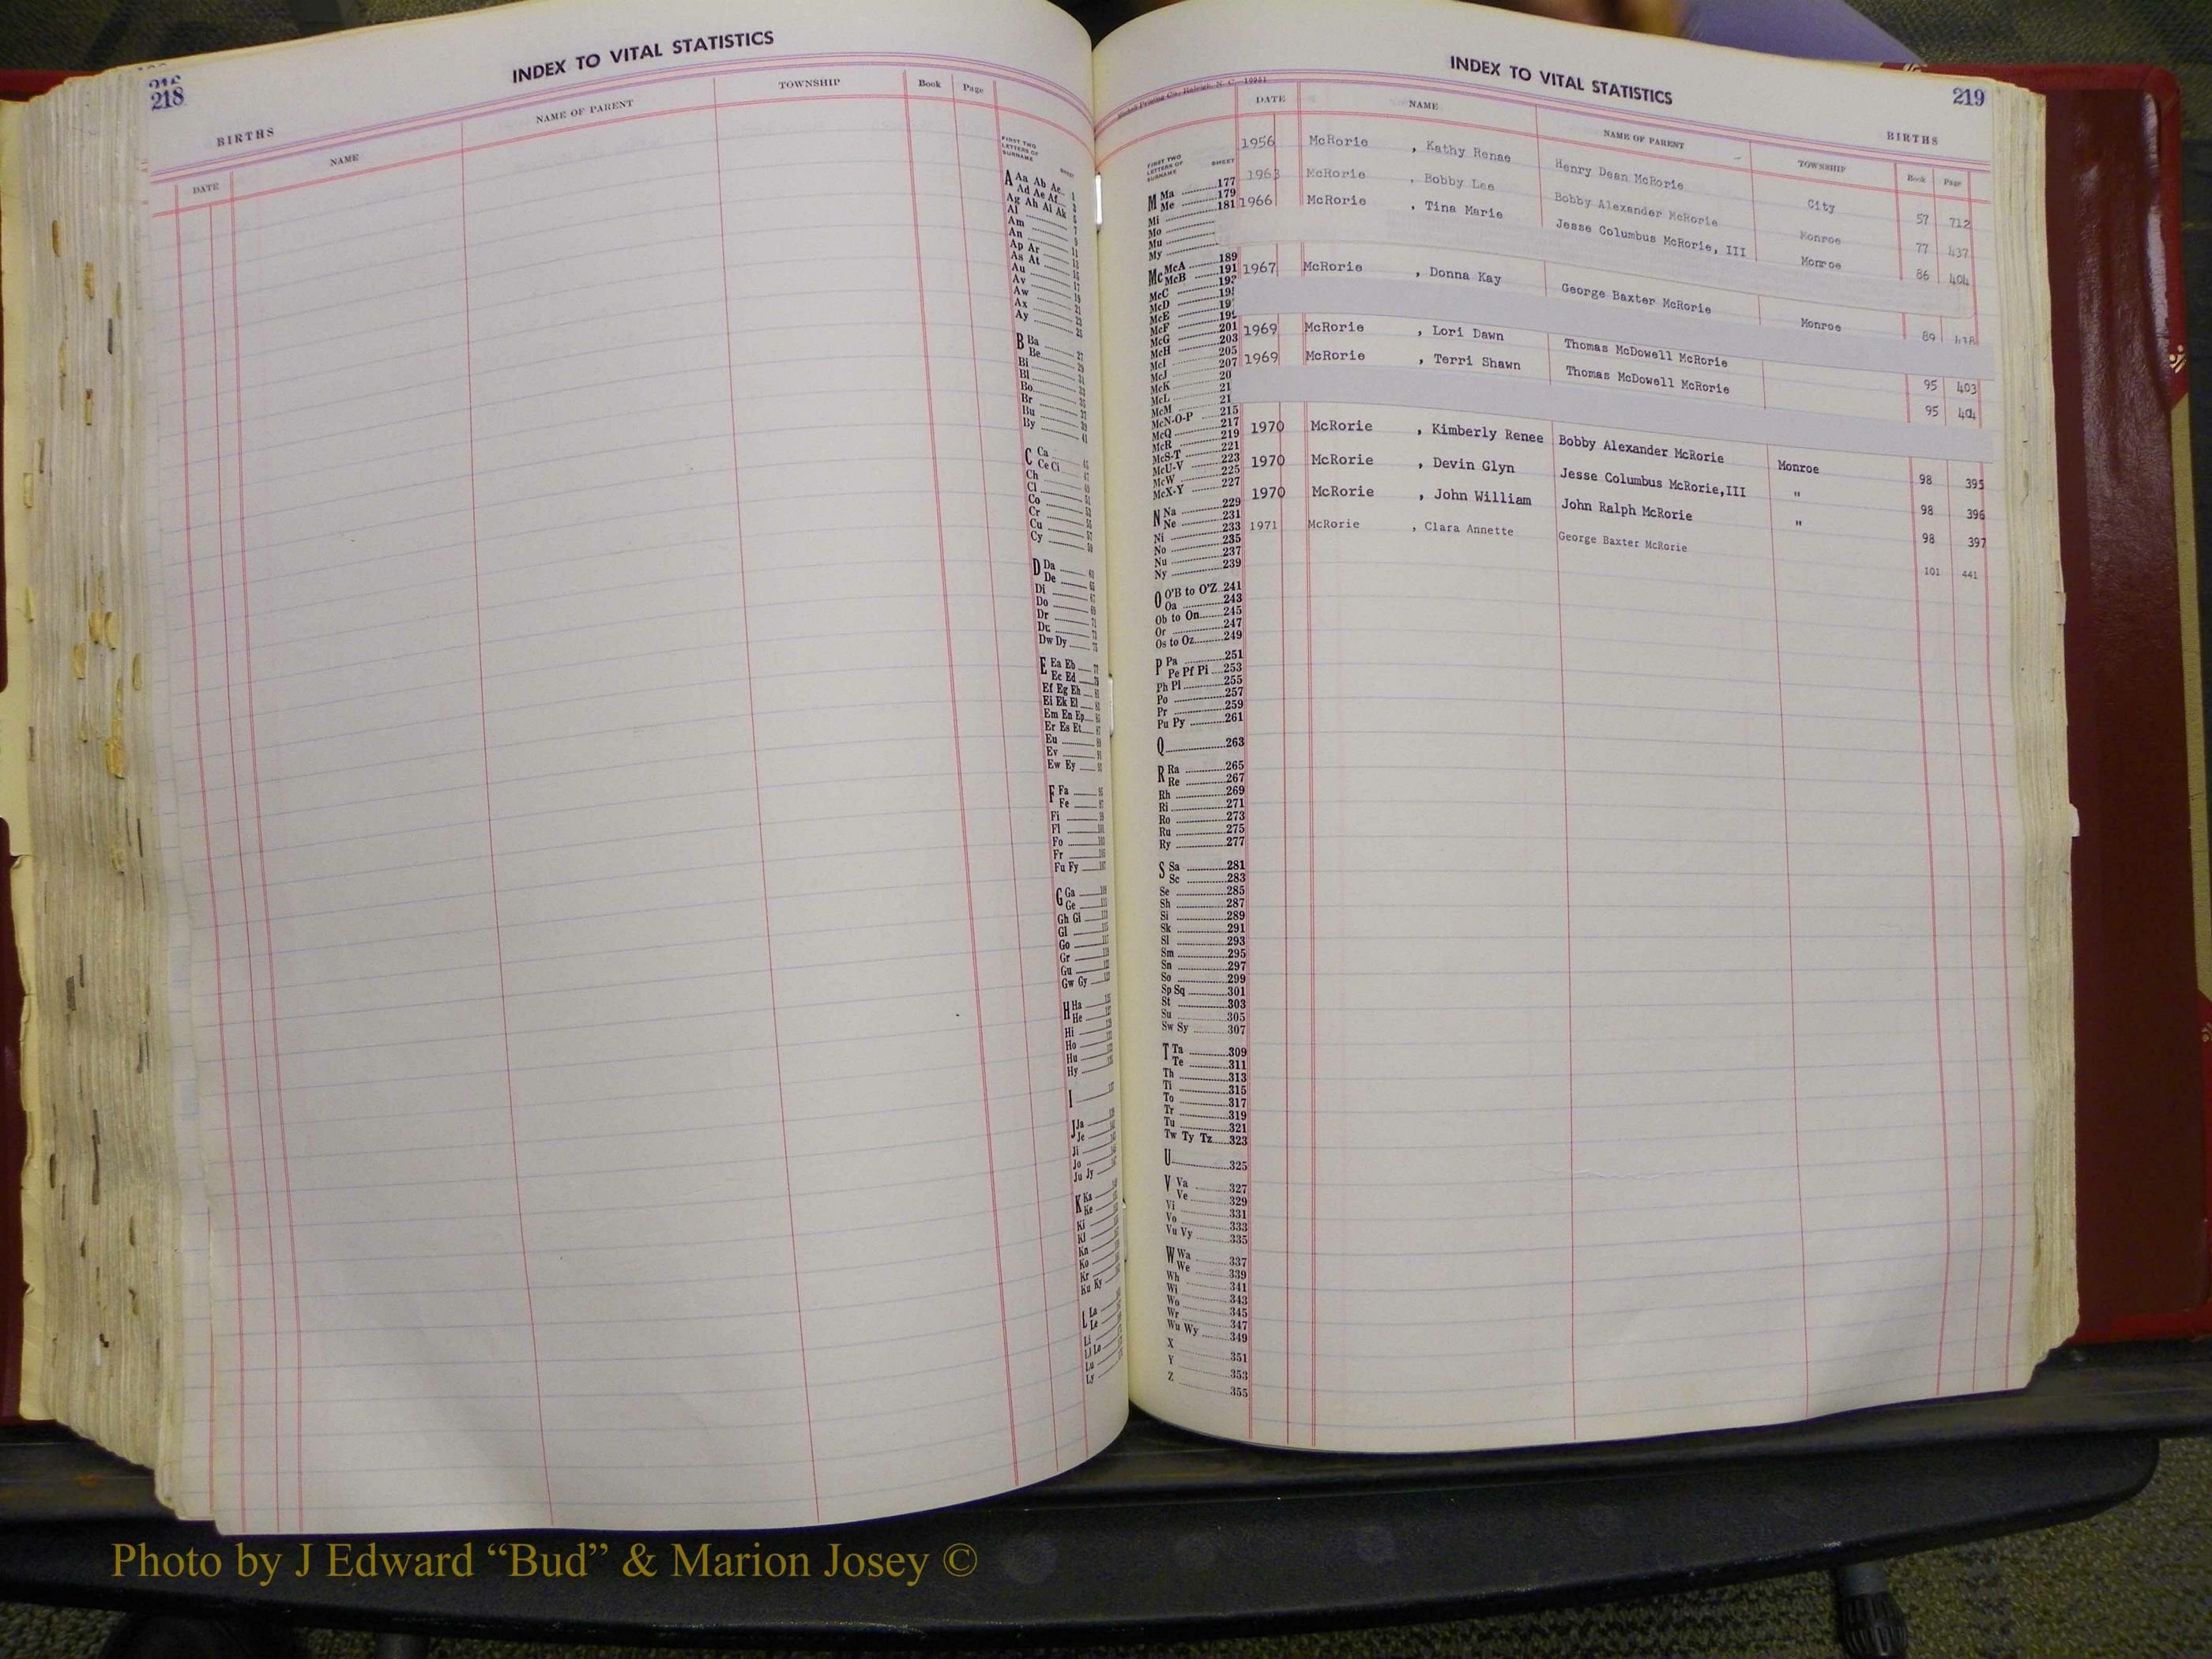 218
INDEX TO VITAL STATISTICS
BIRTHS
DATE NAME NAME OF PARENT TOWNSHIP Book Page
FIRST TWO
LETTERS OF
SURNAME
SHEET
A Aa Ab Ac
Ad Ae Af
Ag Ah Ai Ak
Al
Am
An
Ap Ar
As At
Au
Av
Aw
Ax
Ay
B Ba
Be
Bi
Bl
Bo
Br
Bu
By
C Ca
Ce Ci
Ch
Cl
Co
Cr
Cu
Cy
D Da
De
Di
Do
Dr
Du
Dw Dy
E Ea Eb
Ec Ed
Ef Eg Eh
Ei Ek El
Em En Ep
Er Es Et
Eu
Ev
Ew Ey
F Fa
Fe
Fi
Fl
Fo
Fr
Fu Fy
G Ga
Ge
Gh Gi
Gl
Go
Gr
Gu
Gw Gy
H Ha
He
Hi
Ho
Hu
Hy
I
J Ja
Je
Ji
Jo
Ju Jy
K Ka
Ke
Ki
Kl
Kn
Ko
Kr
Ku Ky
L La
Le
Li
Ll Lo
Lu
Ly
INDEX TO VITAL STATISTICS
219
BIRTHS
DATE NAME NAME OF PARENT TOWNSHIP Book Page
1956 McRorie , Kathy Renae Henry Dean McRorie City 57 712
1963 McRorie , Bobby Lee Bobby Alexander McRorie Monroe 77 437
1966 McRorie , Tina Marie Jesse Columbus McRorie, III Monroe 86 404
1967 McRorie , Donna Kay George Baxter McRorie Monroe 89 418
1969 McRorie , Lori Dawn Thomas McDowell McRorie 95 403
1969 McRorie , Terri Shawn Thomas McDowell McRorie 95 404
1970 McRorie , Kimberly Renee Bobby Alexander McRorie Monroe 98 395
1970 McRorie , Devin Glyn Jesse Columbus McRorie,III " 98 396
1970 McRorie , John William John Ralph McRorie " 98 397
1971 McRorie , Clara Annette George Baxter McRorie 101 441
FIRST TWO
LETTERS OF
SURNAME
SHEET
M Ma 177
Me 179
Mi 181
Mo
Mu
My
Mc McA 189
McB 191
McC
McD
McE
McF
McG 201
McH 203
McI 205
McJ 207
McK
McL
McM
McN-O-P 215
McQ 217
McR 219
McS-T 221
McU-V 223
McW 225
McX-Y 227
N Na 229
Ne 231
Ni 233
No 235
Nu 237
Ny 239
O O'B to O'Z 241
Oa 243
Ob to On 245
Or 247
Os to Oz 249
P Pa 251
Pe Pf Pi 253
Ph Pl 255
Po 257
Pr 259
Pu Py 261
Q 263
R Ra 265
Re 267
Rh 269
Ri 271
Ro 273
Ru 275
Ry 277
S Sa 281
Sc 283
Se 285
Sh 287
Si 289
Sk 291
Sl 293
Sm 295
Sn 297
So 299
Sp Sq 301
St 303
Su 305
Sw Sy 307
T Ta 309
Te 311
Th 313
Ti 315
To 317
Tr 319
Tu 321
Tw Ty Tz 323
U 325
V Va 327
Ve 329
Vi 331
Vo 333
Vu Vy 335
W Wa 337
We 339
Wh 341
Wi 343
Wo 345
Wr 347
Wu Wy 349
X 351
Y 353
Z 355
Photo by J Edward “Bud” & Marion Josey ©